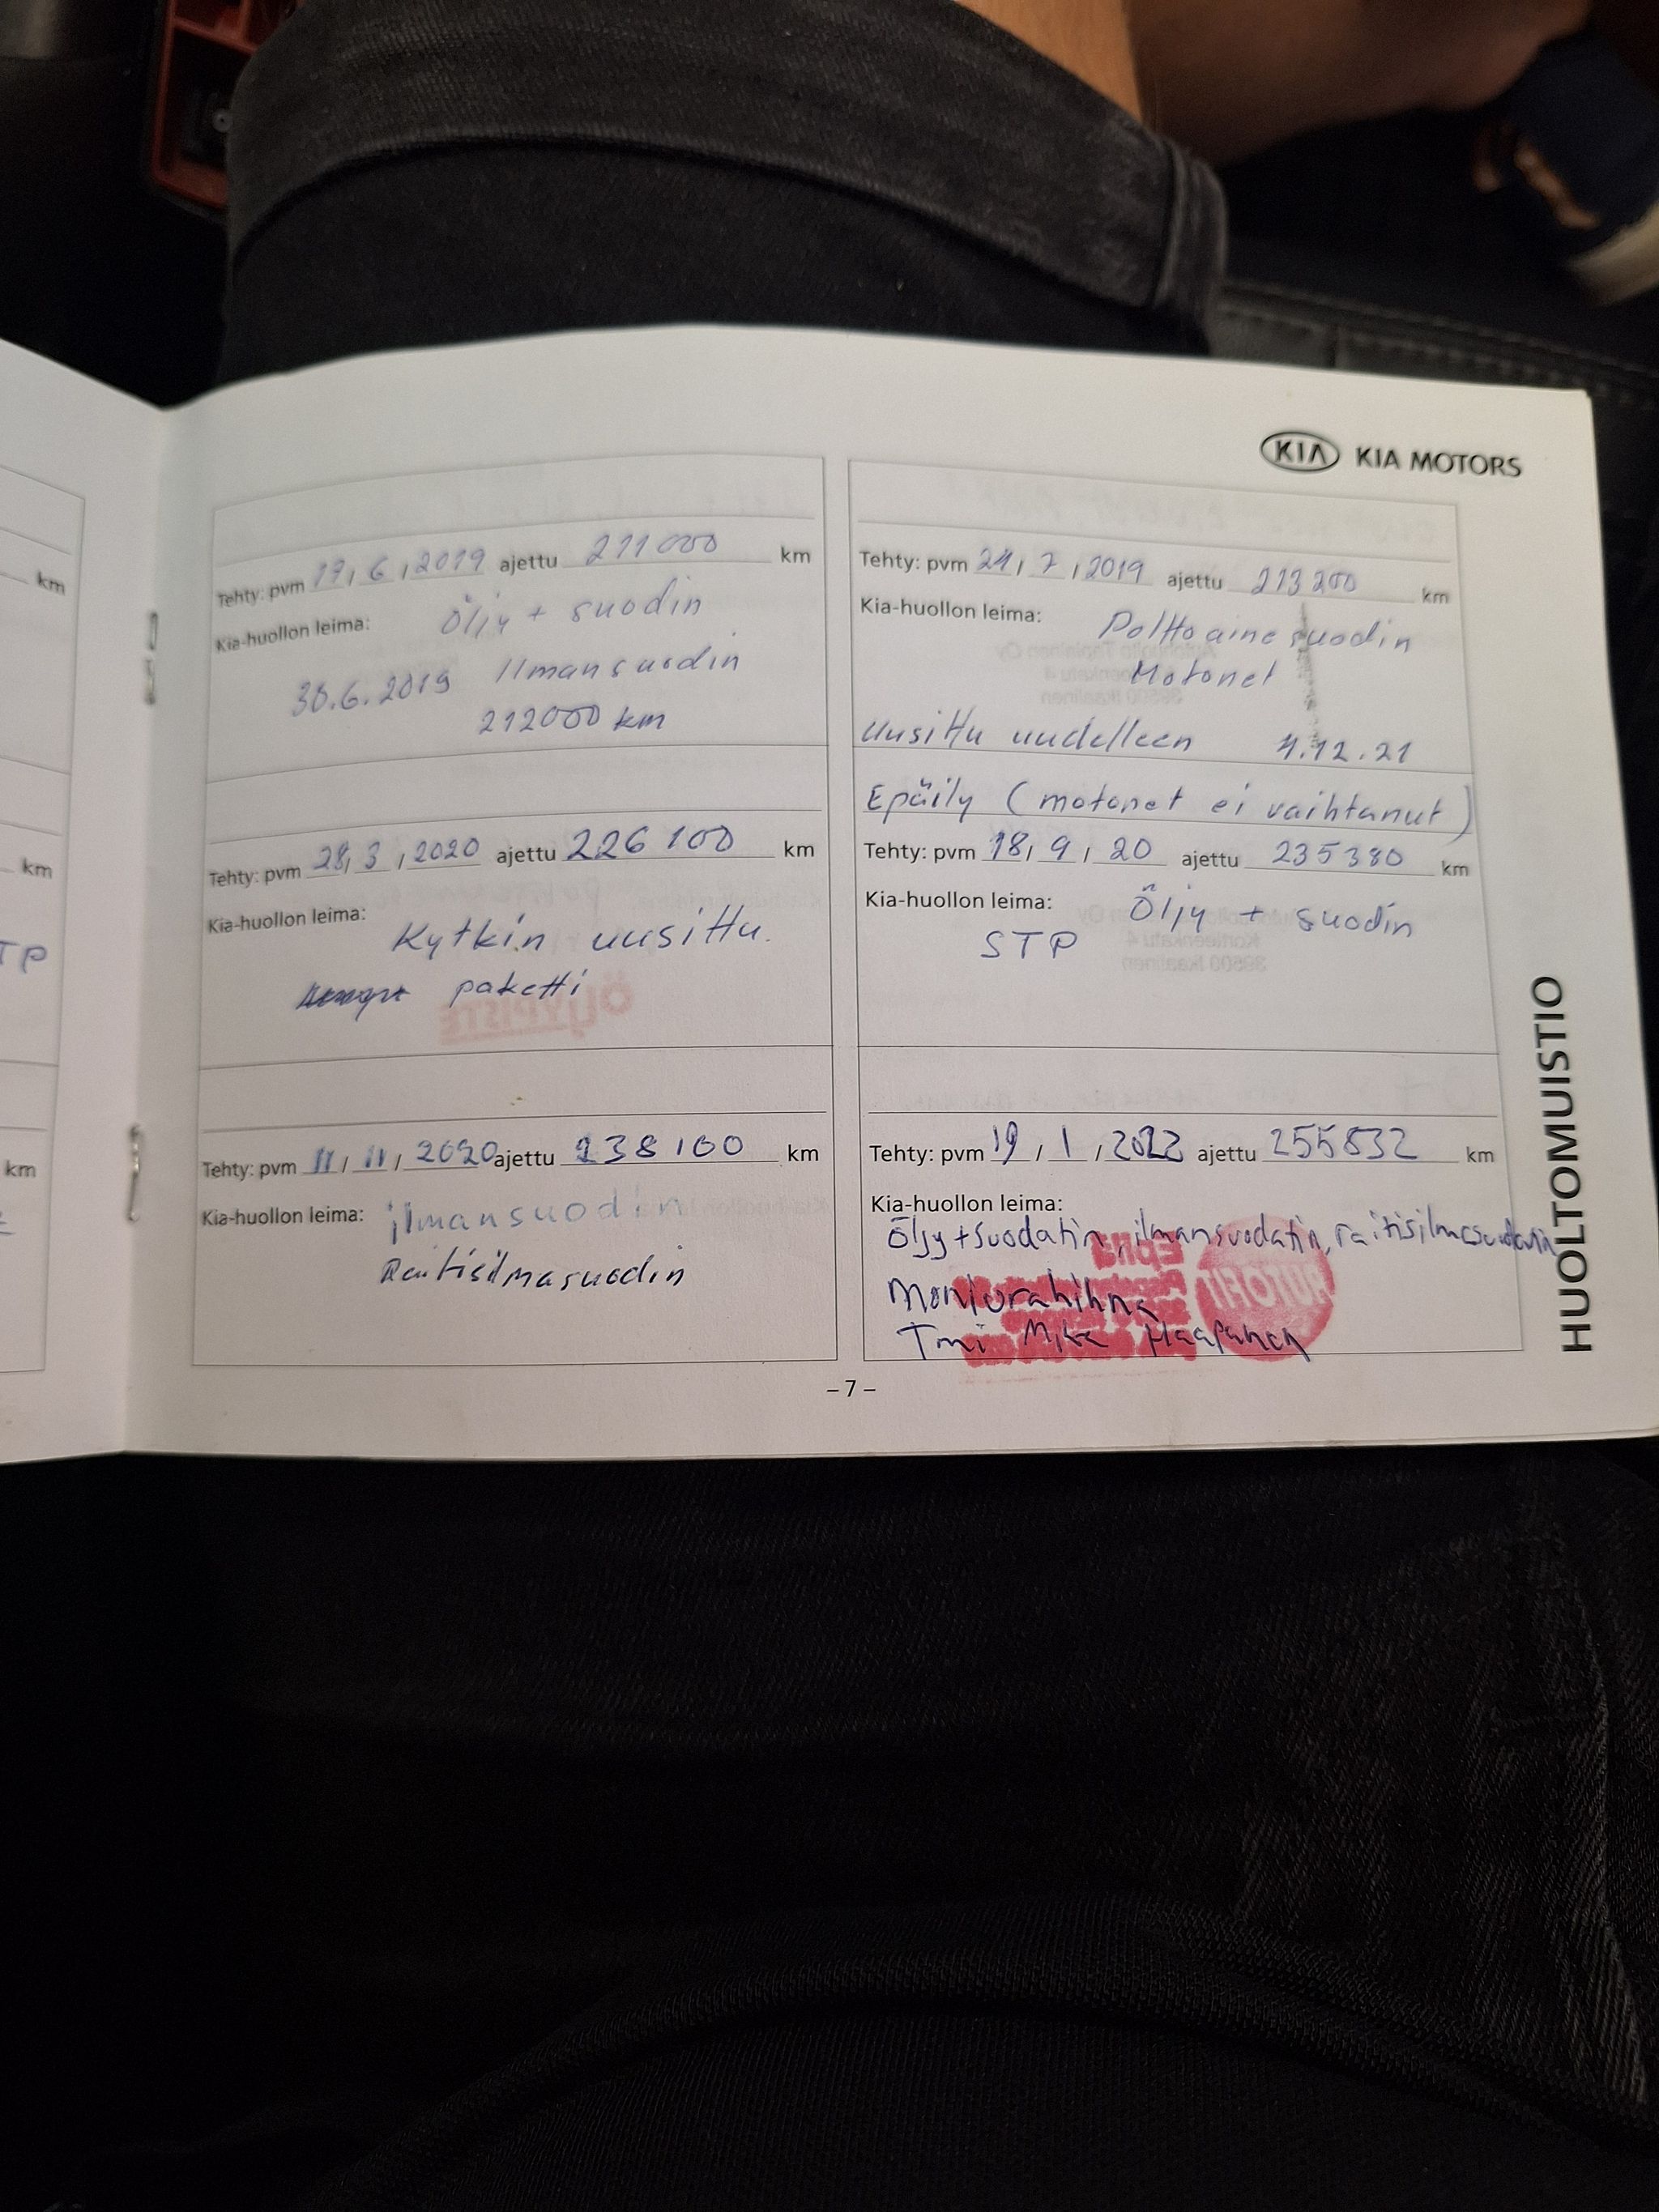 KIA KIA MOTORS
Tehty: pvm 17/6/2019 ajettu 211000 km
Kia-huollon leima:
Öljy + suodin
30.6.2019 Ilmansuodin
212000 km
Tehty: pvm 24/7/2019 ajettu 213200 km
Kia-huollon leima:
Polttoainesuodin
Motonet
Uusittu uudelleen 4.12.21
Epäily (motonet ei vaihtanut)
Tehty: pvm 28/3/2020 ajettu 226 100 km
Kia-huollon leima:
Kytkin uusittu.
paketti
Tehty: pvm 18/9/20 ajettu 235380 km
Kia-huollon leima:
Öljy + suodin
STP
Tehty: pvm 11/11/2020 ajettu 238 100 km
Kia-huollon leima: ilmansuodin
Raitisilmasuodin
Tehty: pvm 19/1/2022 ajettu 255832 km
Kia-huollon leima:
Öljy + suodatin, ilmansuodatin, raitisilmasuodatin
Moniurahihna
Tmi Mika Haapanen
HUOLTOMUISTIO
– 7 –
km
km
TP
km